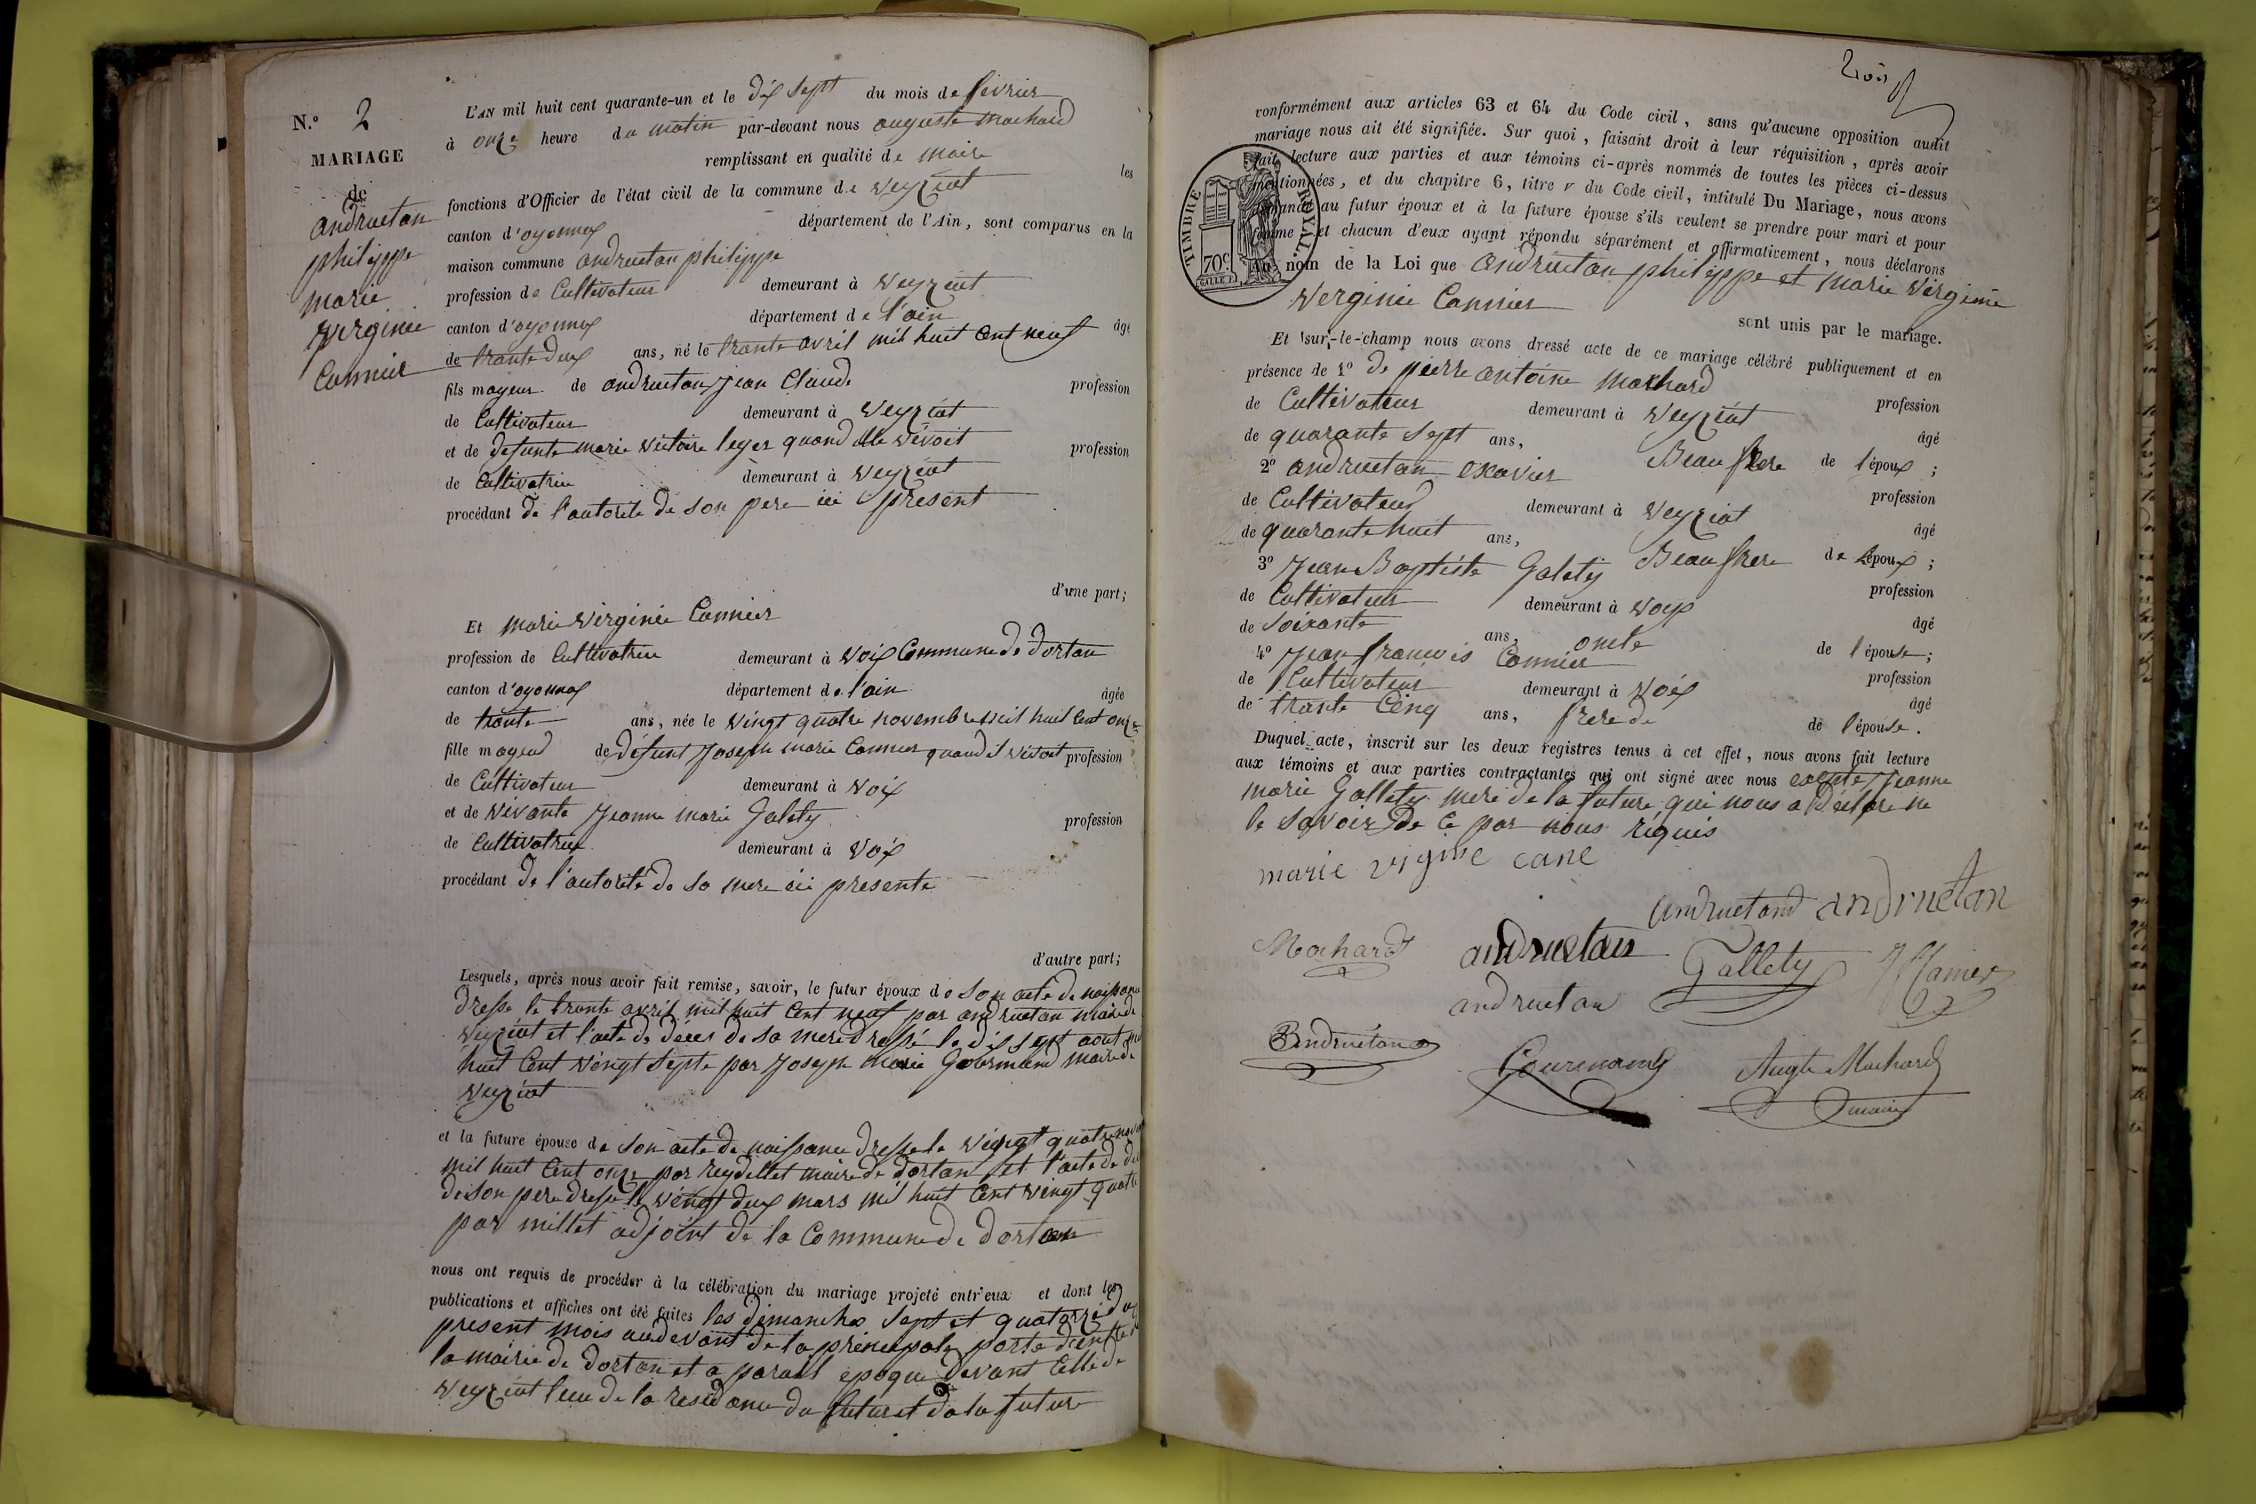 N.º 2
MARIAGE
de
andruetan
philippe
marie
verginie
Cannier
L'AN mil huit cent quarante-un et le dix sept du mois de fevrier
à onze heure du matin par-devant nous auguste Machard
remplissant en qualité de maire les
fonctions d'Officier de l'état civil de la commune de Veyziat
canton d'oyonnax département de l'Ain, sont comparus en la
maison commune andruetan philippe
profession de Cultivateur demeurant à Veyziat
canton d'oyonnax département de l'ain âgé
de trante deux ans, né le trante avril mil huit Cent neuf
fils mageur de andruetan Jean Claude profession
de Cultivateur demeurant à Veyziat
et de defunte marie Victoire leger quand elle vévoit profession
de Cultivatrice demeurant à Veyziat
procédant de l'autorite de son pere ici present
d'une part;
Et marie Verginie Cannier
profession de Cultivatrice demeurant à Voix Commune de Dortan
canton d'oyonnax département de l'ain âgée
de trante ans, née le vingt quatre novembre mil huit Cent onze
fille mageur de défunt Joseph marie Cannier quand il vévoit profession
de Cultivateur demeurant à Voix
et de vévante Jeanne marie Galety profession
de Cultivatrice demeurant à Voix
procédant de l'autorité de sa mere ici presente
d'autre part;
Lesquels, après nous avoir fait remise, savoir, le futur époux de son acte de naissance
dresse le trante avril mil huit Cent neuf par andruetan maire de
Veyziat et l'acte de déces de sa mere dressé le dix sept aout mil
huit Cent vingt septe par Joseph marie Gourmand maire de
Veyziat
et la future épouse de son acte de naissance dresse le vingt quatre
mil huit Cent onze par reydellet maire de dortan et l'acte de
de son pere dresse le vingt deux mars mil huit Cent vingt quatre
par millet adjoint de la Commune de Dortan
nous ont requis de procéder à la célébration du mariage projeté entr'eux et dont les
publications et affiches ont été faites les dimanches sept et quatorze du
present mois au devant de la principale porte d'entrée
la mairie de dortan et a pareil epoque devant Celle de
Veyziat lieu de la residance du futur et de la future
Trois
conformément aux articles 63 et 64 du Code civil, sans qu'aucune opposition audit
mariage nous ait été signifiée. Sur quoi, faisant droit à leur réquisition, après avoir
fait lecture aux parties et aux témoins ci-après nommés de toutes les pièces ci-dessus
mentionnées, et du chapitre 6, titre v du Code civil, intitulé Du Mariage, nous avons
demandé au futur époux et à la future épouse s'ils veulent se prendre pour mari et pour
femme et chacun d'eux ayant répondu séparément et affirmativement, nous déclarons
Au nom de la Loi que andruetan philippe et marie Virginie
Verginie Cannier
sont unis par le mariage.
TIMBRE ROYAL
70c
Et sur-le-champ nous avons dressé acte de ce mariage célébré publiquement et en
présence de 1º de pierre antoine Machard
de Cultivateur demeurant à Veyziat profession
de quarante sept ans, âgé
Beau frere de l'époux ;
2º andruetan exavier
de Cultivateur demeurant à Veyziat profession
de quarante huit ans, âgé
Beau frere de l'époux ;
3º Jean Baptiste Galety
de Cultivateur demeurant à Voix profession
de soixante ans, âgé
oncle de l'épouse ;
4º Jean francois Cannier
de Cultivateur demeurant à Voix profession
de trante Cinq ans, âgé
frere de de l'épouse.
Duquel acte, inscrit sur les deux registres tenus à cet effet, nous avons fait lecture
aux témoins et aux parties contractantes qui ont signé avec nous excepte Jeanne
marie Gallety mere de la future qui nous a déclare ne
le savoir de Ce par nous réquis
marie vigine cane
andruetand andruetan
Machard andruetan Gallety
andruetan
Andruétan
Gourmand Augte Machard
maire